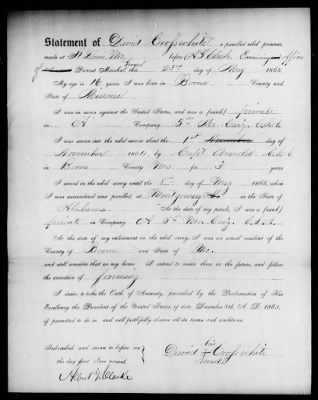 Statement of David Crosswhite a paroled rebel prisoner,
made at St Louis Mo before Examining officer
Provost
of Provost Marshal, this 23rd day of May 1865.
My age is 16 years. I was born in Boone County and
State of Missouri
I was in arms against the United States, and was a (rank) private
in Company 5th Mo Cavy C.S.A.
I was sworn into the rebel service about the 1st day of
November 1864, by Capt
in Boone County Mo for 3 years
I served in the rebel army until the day of May 1865, when
I was surrendered and paroled at Montgomery in the State of
Alabama At the date of my parole, I was a (rank)
private in Company 5th Mo Cavy C.S.A.
At the date of my enlistment in the rebel army, I was an actual resident of the
County of Boone and State of Mo.
and still consider that as my home. I intend to reside there in the future, and follow
the avocation of farming
I desire to take the Oath of Amnesty, provided by the Proclamation of His
Excellency the President of the United States, of date, December 8th A. D. 1863,
if permitted to do so, and will faithfully observe all its terms and conditions.
Subscribed and sworn to before me
the day first above named.
his
David + Crosswhite
mark
Albert Clarke